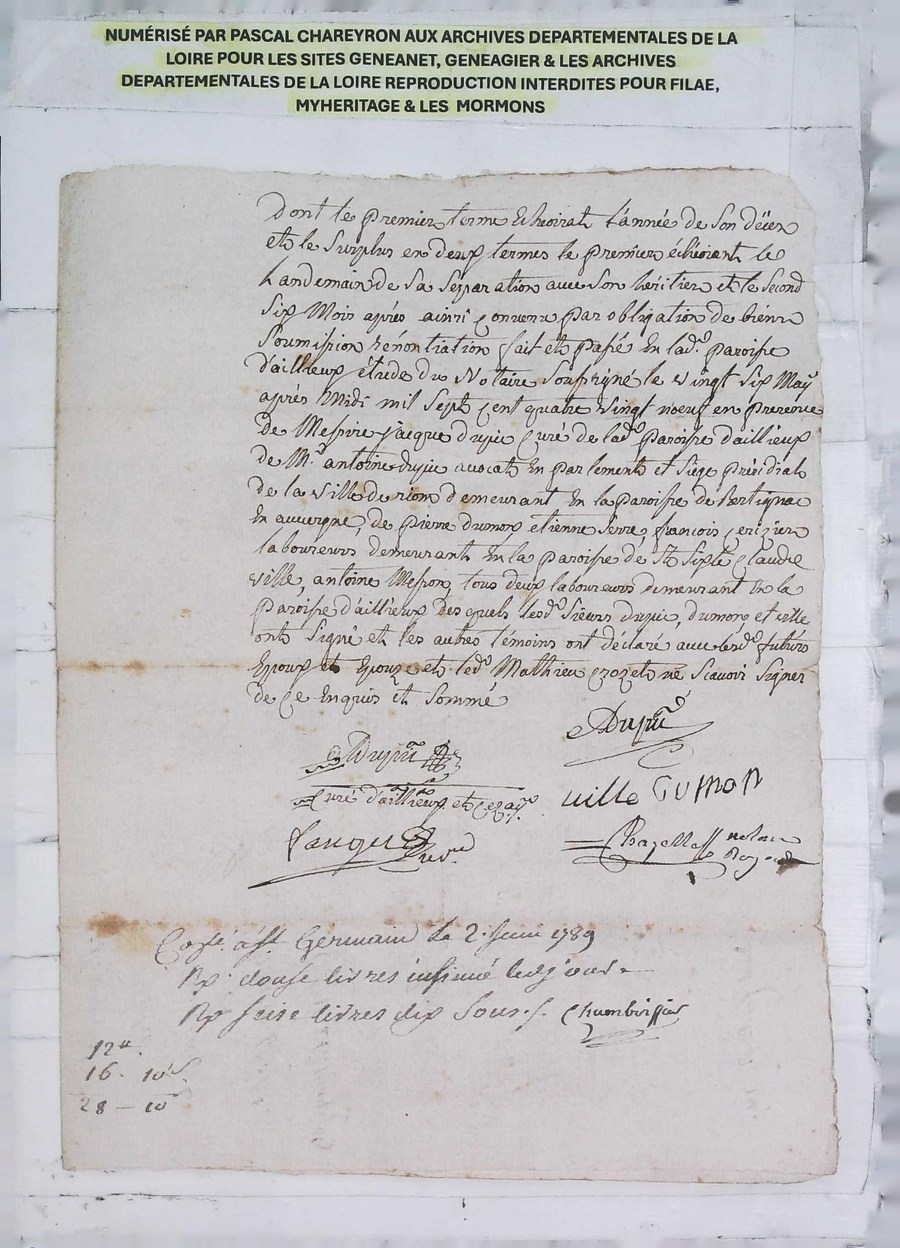 NUMÉRISÉ PAR PASCAL CHAREYRON AUX ARCHIVES DEPARTEMENTALES DE LA
LOIRE POUR LES SITES GENEANET, GENEAGIER & LES ARCHIVES
DEPARTEMENTALES DE LA LOIRE REPRODUCTION INTERDITES POUR FILAE,
MYHERITAGE & LES MORMONS
dont le premier terme Echeoirat l'année de son décex
et le surplus en deux termes le premier écheoirant le
Landemain de sa separation avec son héritier et le second
six Mois après ainsi convenu par obligation de biens
soumission rénontiation fait et passé En lad.e paroisse
d'aillieux étude du Notaire soussigné le vingt six May
après Midi mil sept cent quatre vingt noeuf en presence
de Messire jacque dupic curé de lad.e paroisse d'aillieux
de M.e antoine dupic avocat En parlement et siège présidial
de la ville de riom demeurant En la paroisse de
En auvergne, de pierre dumon, etienne serre, françois cerizier
laboureurs demeurant En la paroisse de St Sixte claude
ville, antoine Messon, tous deux laboureurs demeurant En la
paroisse d'aillieux des quels lesd.s sieurs dupic, dumon, et ville
ont signé et les autres témoins ont déclaré avec lesd.s futurs
Epoux et Epouze et led.t Mathieu crozet ne scavoir signer
de ce Enquis et sommé
Dupic
Dupic
curé d'aillieux et
ville DUMON
Chazelles notaire
Royal
St Germain le 2. juin 1789
Rx. douse livres insinué led jour
Rx seise livres dix sous.
12tt.
16 - 10s.
28 - 10